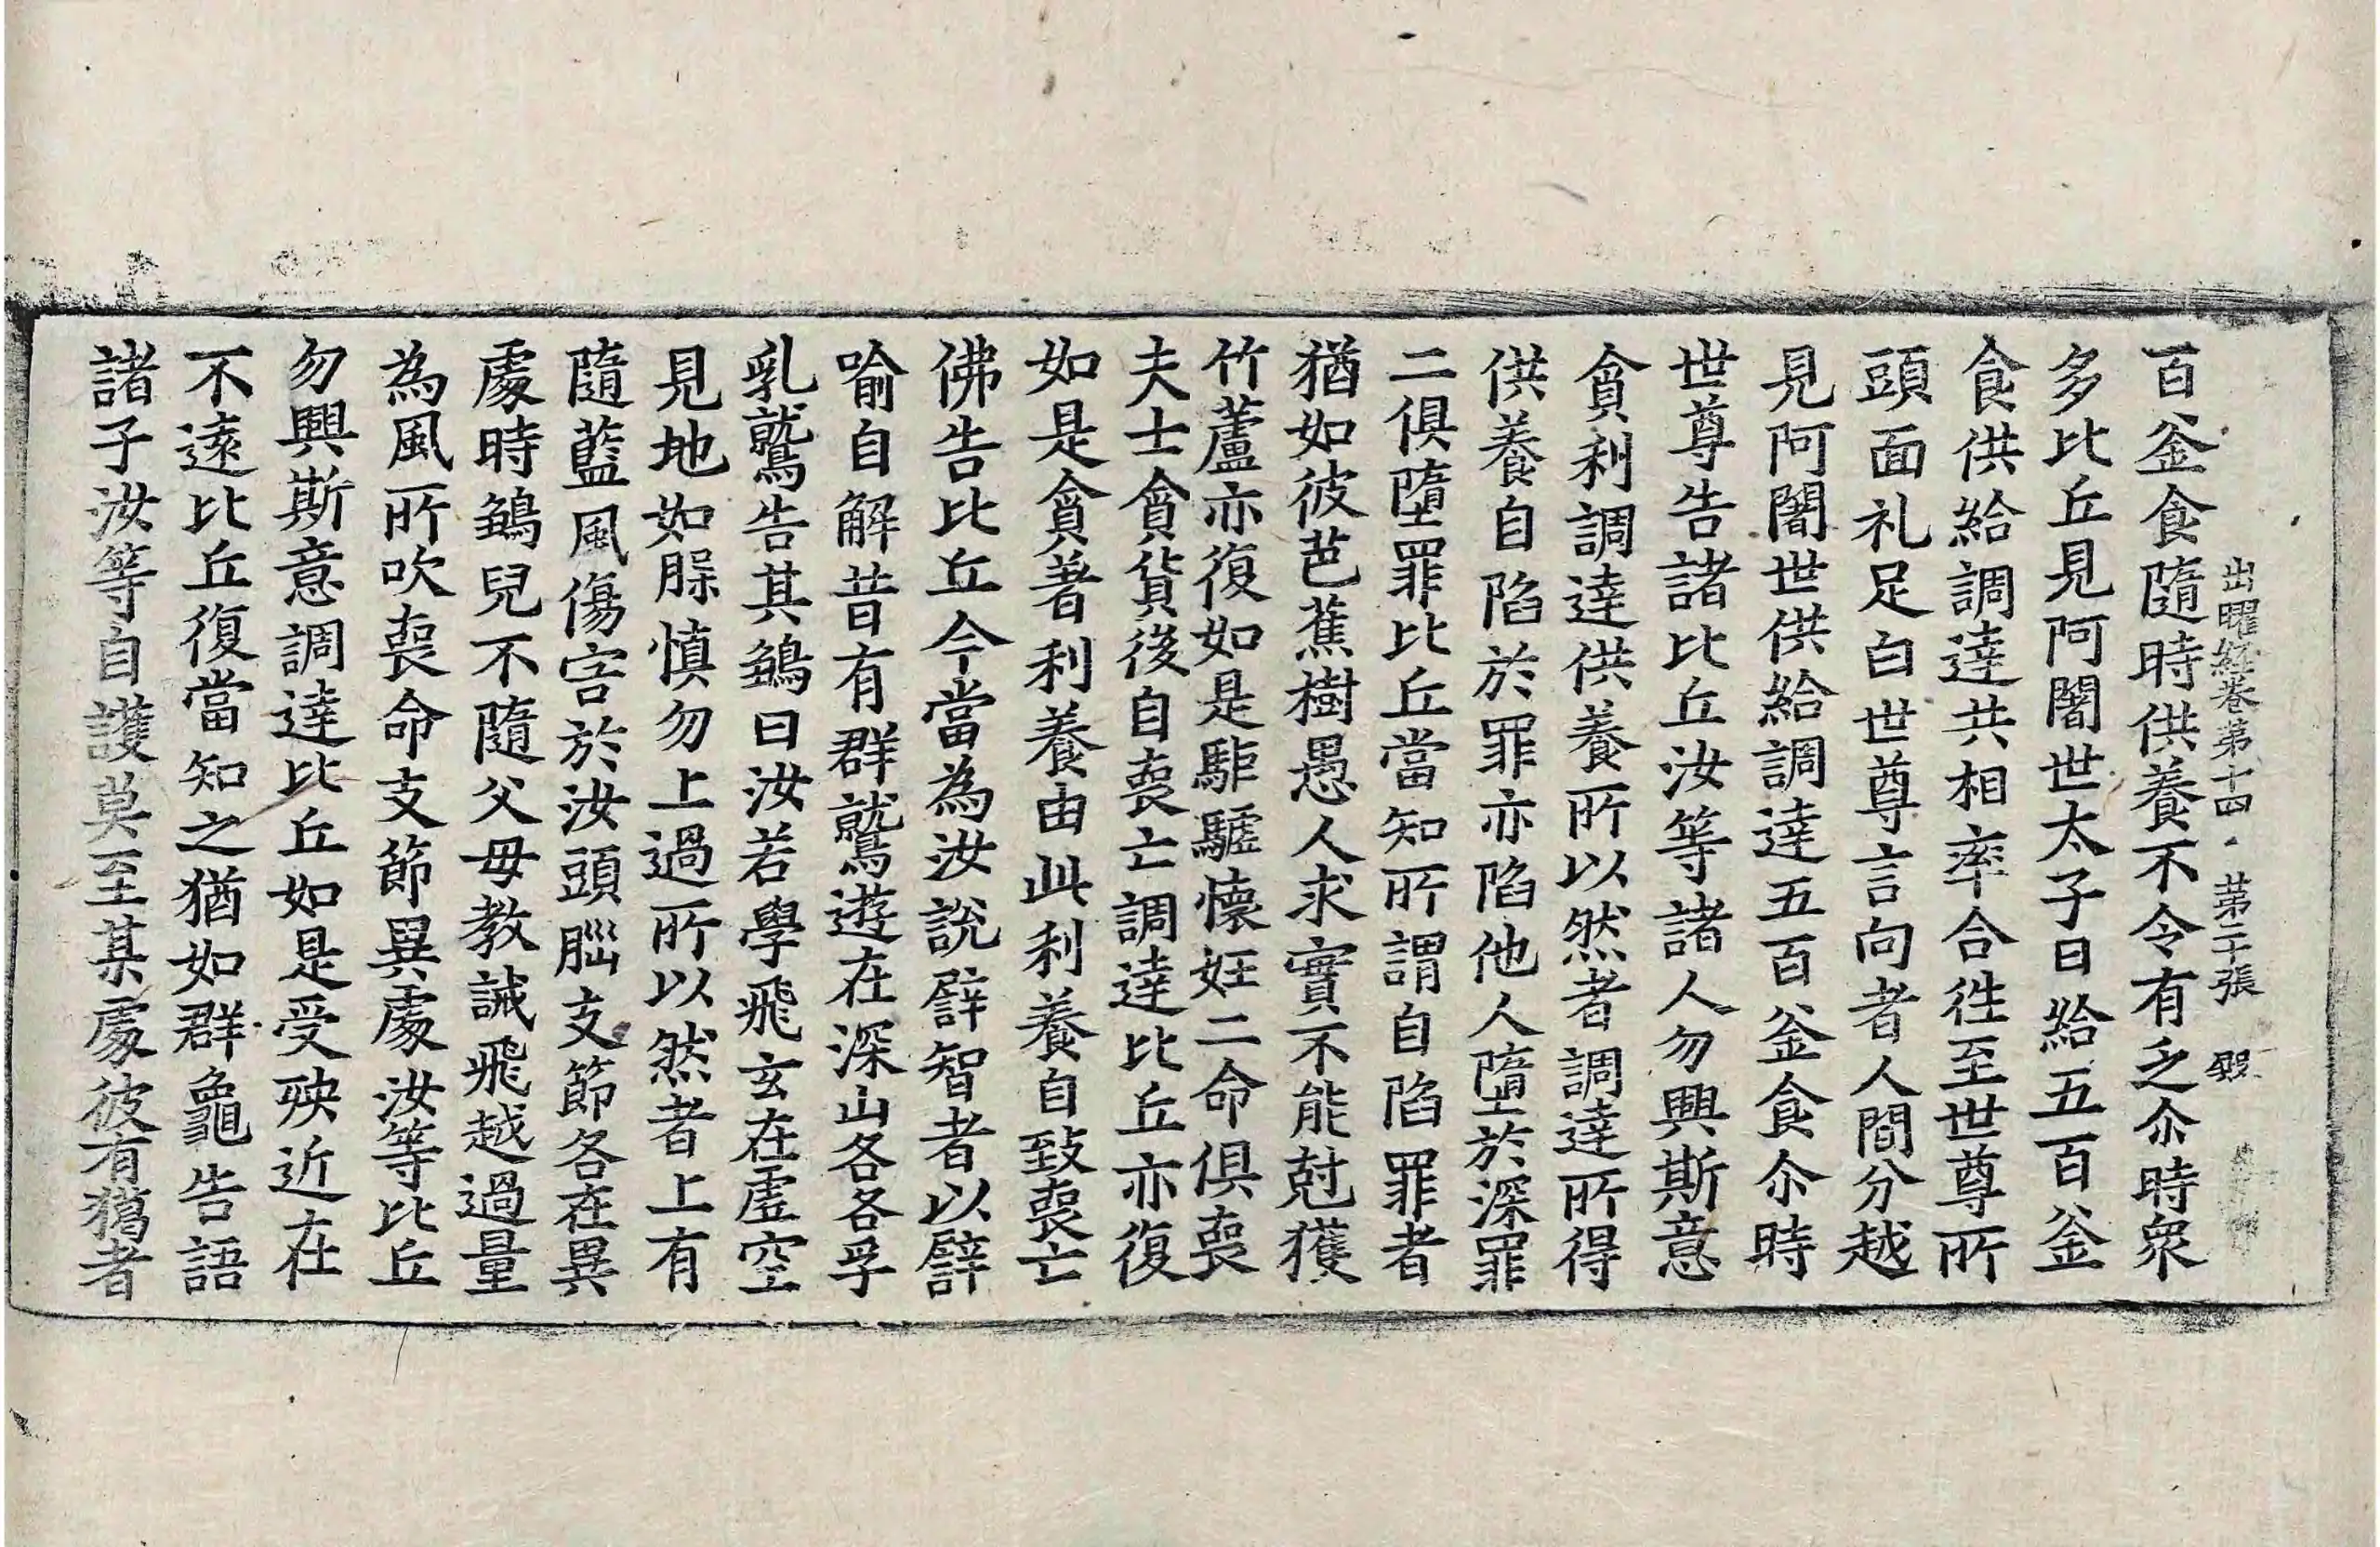 出曜經卷第十四 第二十張 殷
百釜食隨時供養不令有乏尒時衆
多比丘見阿闍世太子日給五百釜
食供給調達共相率合徃至世尊所
頭面礼足白世尊言向者人間分越
見阿闍世供給調達五百釜食尒時
世尊告諸比丘汝等諸人勿興斯意
貪利調達供養所以然者調達所得
供養自陷於罪亦陷他人墮於深罪
二俱墮罪比丘當知所謂自陷罪者
猶如彼芭蕉樹愚人求實不能尅獲
竹蘆亦復如是駏驉懷妊二命俱喪
夫士貪貨後自喪亡調達比丘亦復
如是貪著利養由此利養自致喪亡
佛告比丘今當為汝說譬智者以譬
喻自解昔有群鷲遊在深山各各孚
乳鷲告其鷂曰汝若學飛玄在虛空
見地如𦛨慎勿上過所以然者上有
隨藍風傷害於汝頭腦支節各在異
處時鷂兒不隨父母教誡飛越過量
為風所吹喪命支節異處汝等比丘
勿興斯意調達比丘如是受殃近在
不遠比丘復當知之猶如群龜告語
諸子汝等自護莫至某處彼有獵者